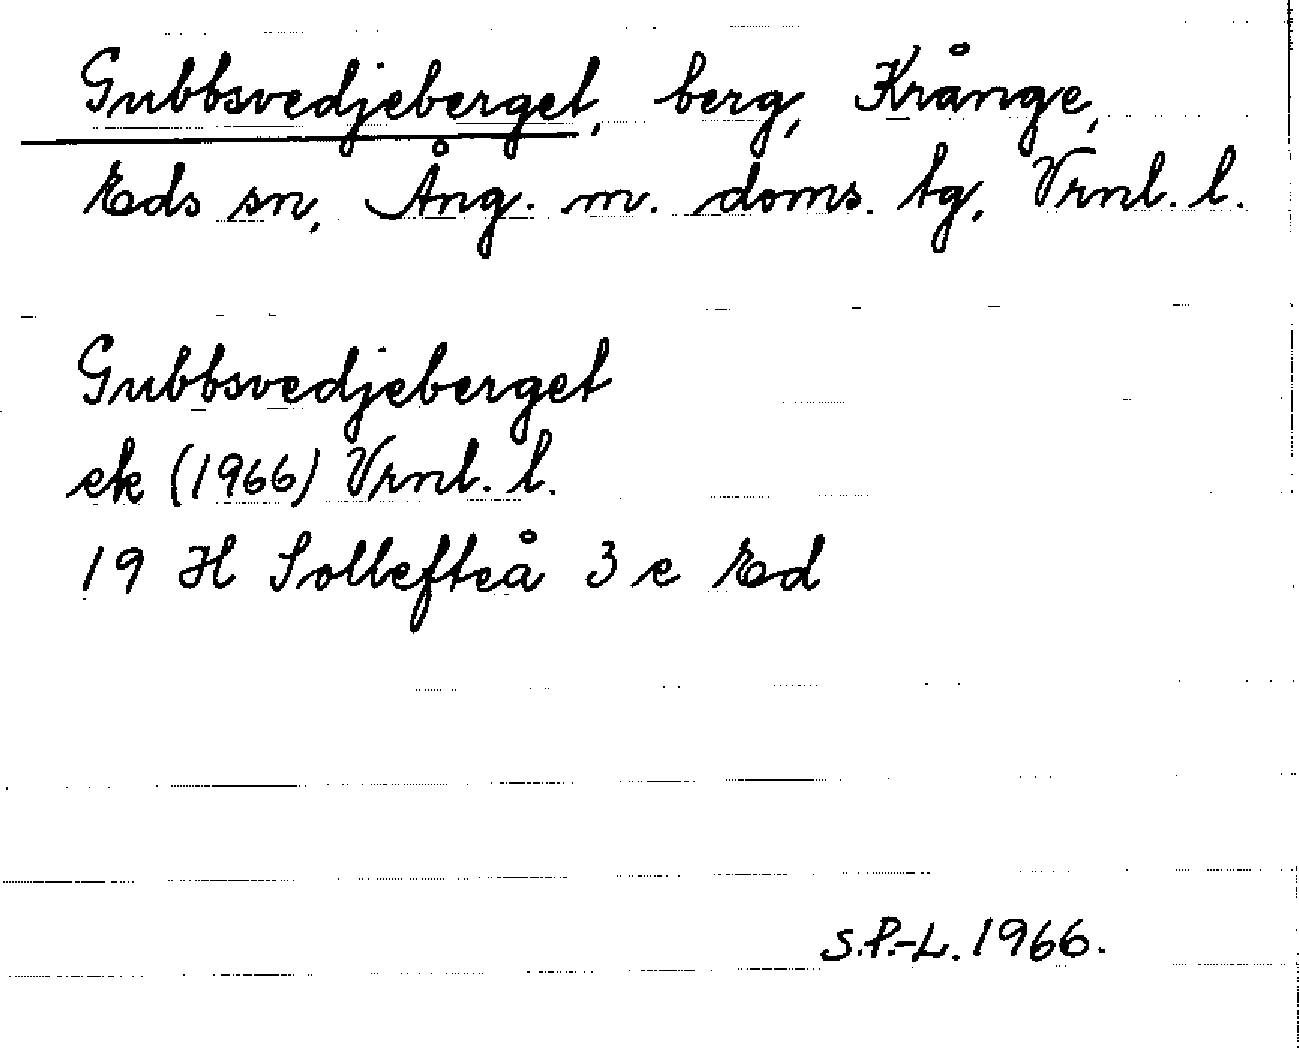 Gubbsvedjeberget, berg, Krånge,
Eds sn, Ång. m. doms. tg, Vrnl. l.
Gubbsvedjeberget
ek (1966) Vrnl. l.
19 H Sollefteå 3 e Ed
S.P.-L. 1966.